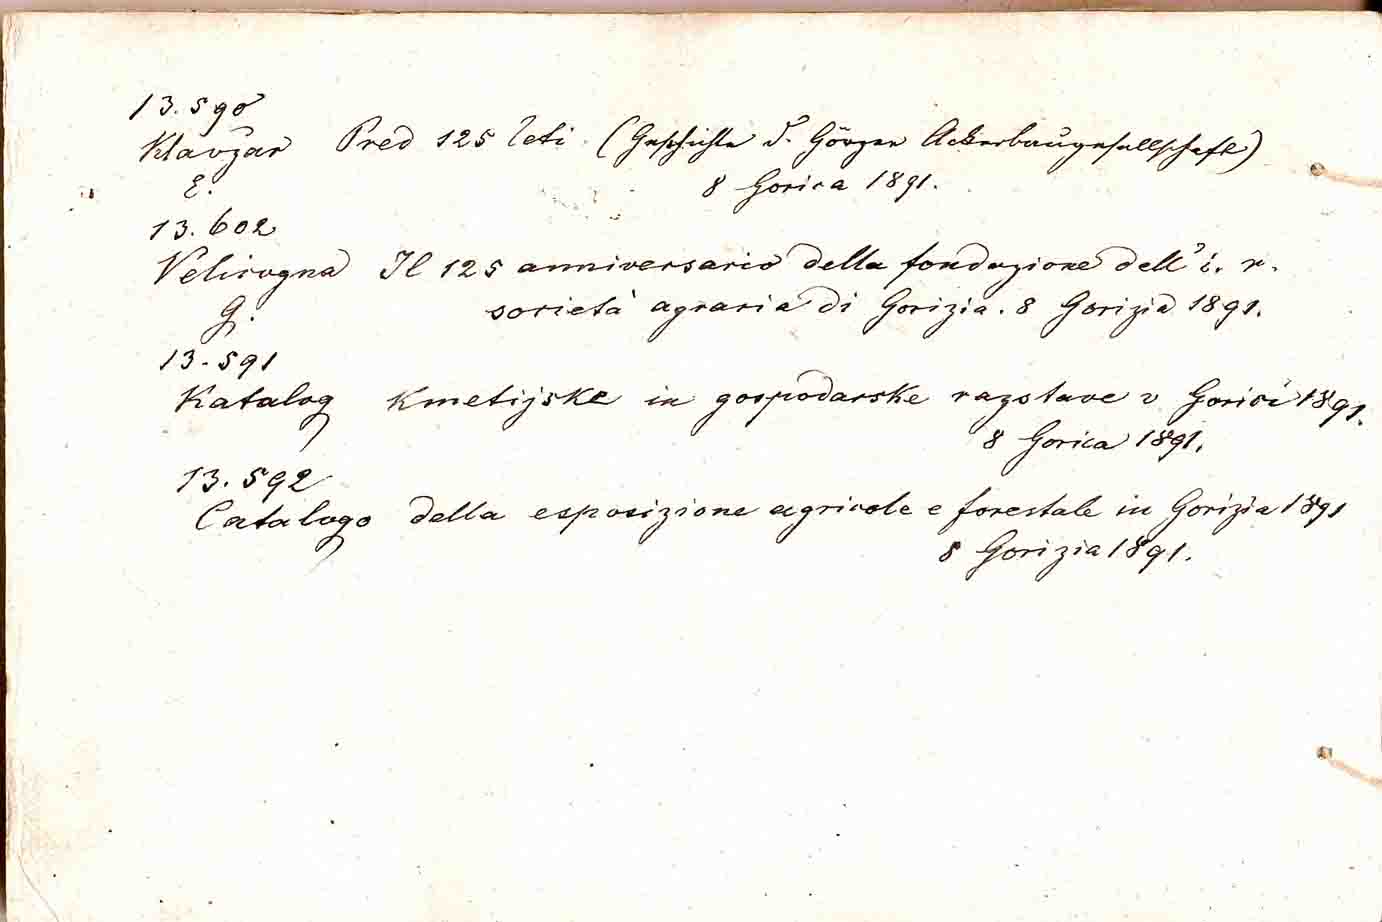 13.590
Klavžar Pred 125 leti. (Geschichte d. Görzer Ackerbaugesellschaft)
E. 8 Gorica 1891.
13.602
Velicogna Il 125 anniversario della fondazione dell' i. r.
G. società agraria di Gorizia. 8 Gorizia 1891.
13.591
Katalog Kmetijske in gospodarske razstave v Gorici 1891.
8 Gorica 1891.
13.592
Catalogo della esposizione agricole e forestale in Gorizia 1891
8 Gorizia 1891.